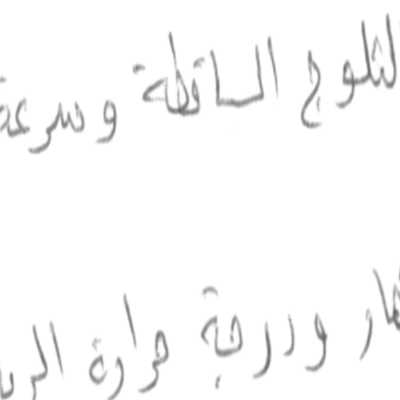 الثلوج الساقطة وسرعة
ودرجة حرارة